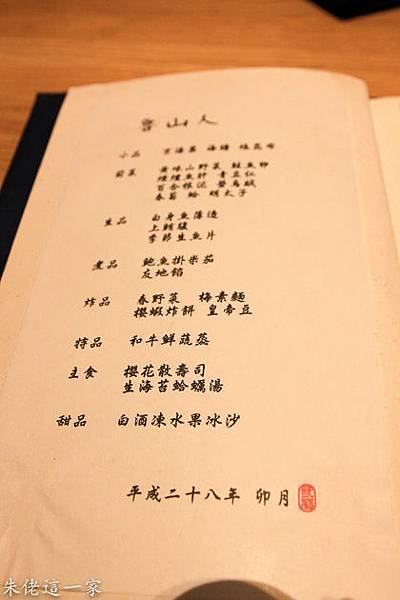 魯山人
小品 京湯葉 海蜇 味昆布
前菜 黃味山野菜 鮭魚卵
煙燻魚肝 青豆仁
百合根泥 螢烏賊
春菊 蛤 明太子
生品 白身魚薄造
上鮪腹
季節生魚片
煮品 鮑魚掛米茄
友地餡
炸品 春野菜 梅素麵
櫻蝦炸餅 皇帝豆
特品 和牛鮮蔬蒸
主食 櫻花散壽司
生海苔蛤蠣湯
甜品 白酒凍水果冰沙
平成二十八年 卯月
朱佬這一家